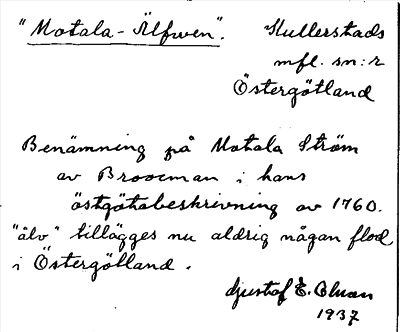 "Motala-Älfwen". Kullerstads
mfl. sn:r
Östergötland
Benämning på Motala Ström
av Broocman i hans
östgötabeskrivning av 1760.
"älv" tillägges nu aldrig någan flod
i Östergötland.
Gustaf E.
1937